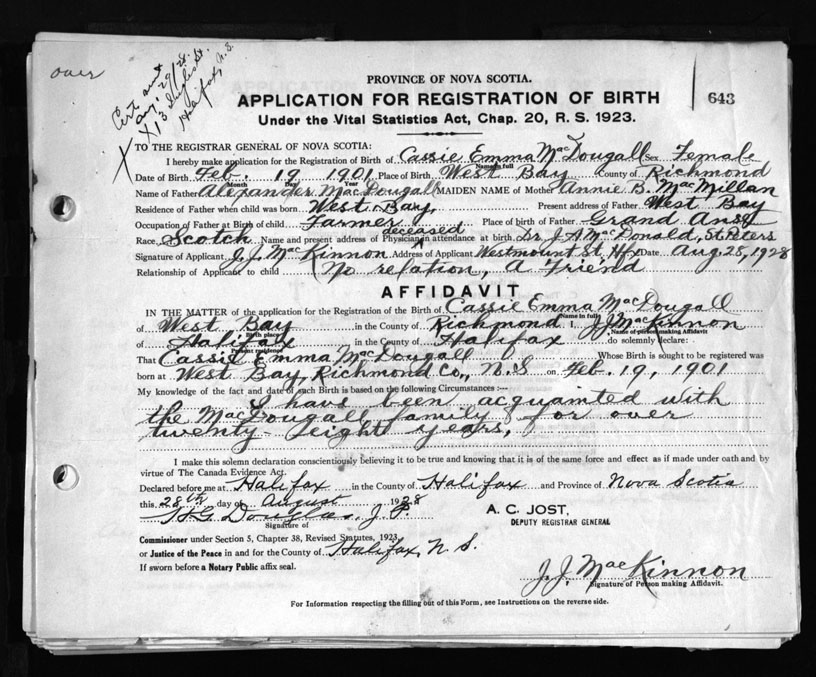 over
Cert sent
Aug. 29/28.
X13 St.
Halifax, N.S.
PROVINCE OF NOVA SCOTIA.
APPLICATION FOR REGISTRATION OF BIRTH
643
Under the Vital Statistics Act, Chap. 20, R. S. 1923.
TO THE REGISTRAR GENERAL OF NOVA SCOTIA:
I hereby make application for the Registration of Birth of Cassie Emma MacDougall Sex Female
Name in full
Date of Birth Feb. 19 1901 Place of Birth West Bay County of Richmond
Month Day Year
Name of Father Alexander MacDougall MAIDEN NAME of Mother Annie B. MacMillan
Residence of Father when child was born West Bay, Present address of Father West Bay
Occupation of Father at Birth of child Farmer Place of birth of Father Grand Anse
deceased
Race, Scotch Name and present address of Physician in attendance at birth Dr J A MacDonald, St Peters
Signature of Applicant J. J. MacKinnon Address of Applicant Westmount St. Hfx Date Aug 28, 1928
Relationship of Applicant to child No relation, A Friend
AFFIDAVIT
IN THE MATTER of the application for the Registration of the Birth of Cassie Emma MacDougall
Name in full
of West Bay in the County of Richmond I, J J MacKinnon
Birth place Name of person making Affidavit
of Halifax in the County of Halifax do solemnly declare:
Present residence
That Cassie Emma MacDougall Whose Birth is sought to be registered was
born at West Bay, Richmond Co., N. S on Feb. 19, 1901
My knowledge of the fact and date of such Birth is based on the following Circumstances:—
I have been acquainted with
the MacDougall family for over
twenty eight years,
I make this solemn declaration conscientiously believing it to be true and knowing that it is of the same force and effect as if made under oath and by
virtue of The Canada Evidence Act.
Declared before me at Halifax in the County of Halifax and Province of Nova Scotia
this 28th day of August 1928
H G Douglas, J. P.
Signature of
A. C. JOST,
DEPUTY REGISTRAR GENERAL
Commissioner under Section 5, Chapter 38, Revised Statutes, 1923
or Justice of the Peace in and for the County of Halifax, N. S.
If sworn before a Notary Public affix seal.
J. J. MacKinnon
Signature of Person making Affidavit.
For Information respecting the filling out of this Form, see Instructions on the reverse side.